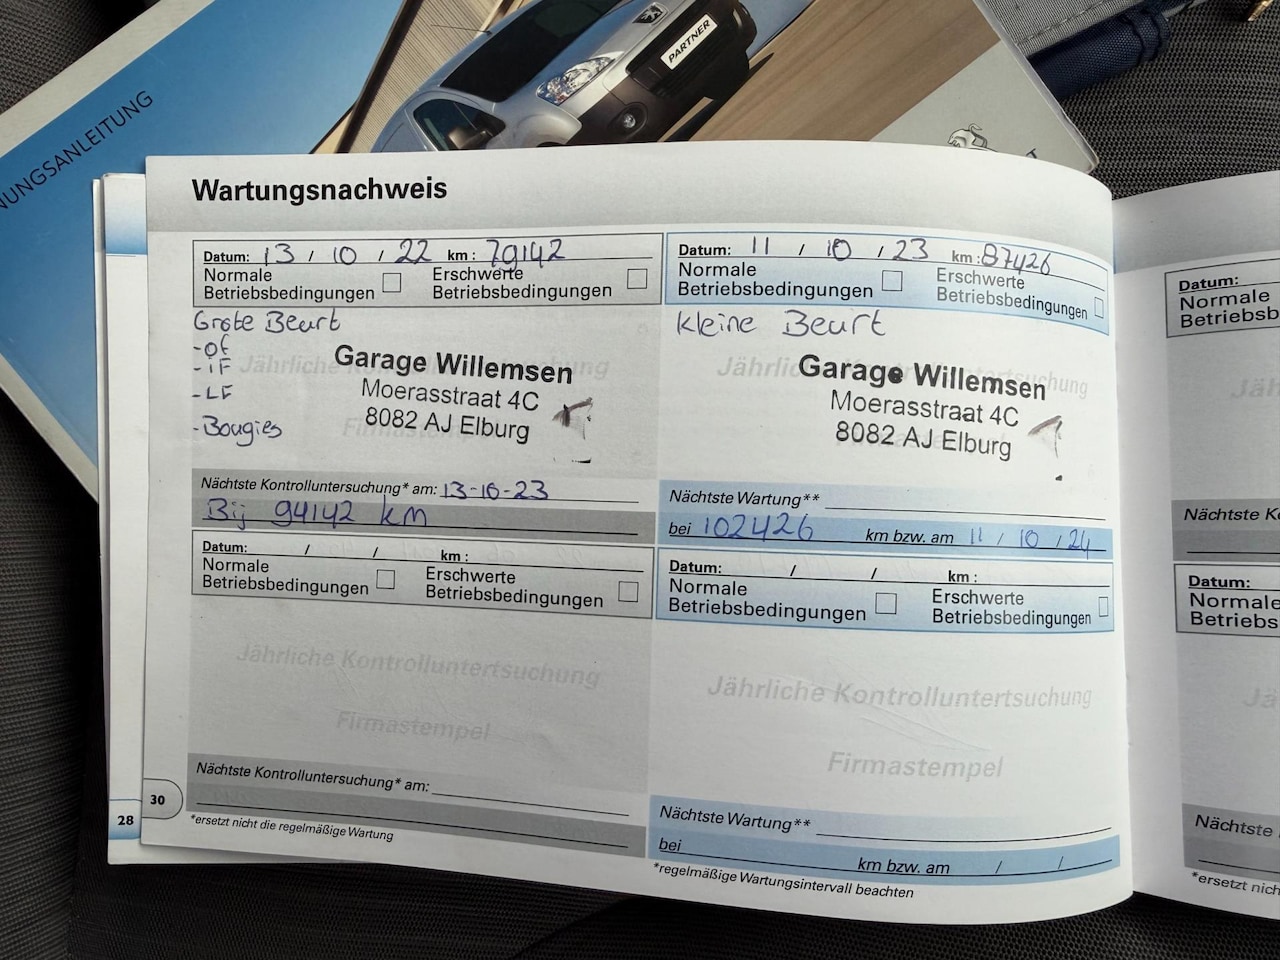 NUNGSANLEITUNG
PARTNER
Wartungsnachweis
Datum: 13 / 10 / 22 km: 79142
Normale
Betriebsbedingungen
Erschwerte
Betriebsbedingungen
Grote Beurt
-OF
-iF
-LF
-Bougies
Jährliche Kontrolluntersuchung
Firmastempel
Garage Willemsen
Moerasstraat 4C
8082 AJ Elburg
Nächste Kontrolluntersuchung* am: 13-10-23
Bij 94142 km
Datum: 11 / 10 / 23 km: 87426
Normale
Betriebsbedingungen
Erschwerte
Betriebsbedingungen
kleine Beurt
Jährliche Kontrolluntersuchung
Garage Willemsen
Moerasstraat 4C
8082 AJ Elburg
Nächste Wartung**
bei 102426 km bzw. am 11 / 10 / 24
Datum: / / km:
Normale
Betriebsbedingungen
Erschwerte
Betriebsbedingungen
Jährliche Kontrolluntertsuchung
Firmastempel
Nächste Kontrolluntersuchung* am:
*ersetzt nicht die regelmäßige Wartung
Datum: / / km:
Normale
Betriebsbedingungen
Erschwerte
Betriebsbedingungen
Jährliche Kontrolluntertsuchung
Firmastempel
Nächste Wartung**
bei km bzw. am / /
*regelmäßige Wartungsintervall beachten
30
28
Datum:
Normale
Betriebsb
Jäh
Nächste K
Datum:
Normale
Betriebs
Jä
Nächste
*ersetzt nich